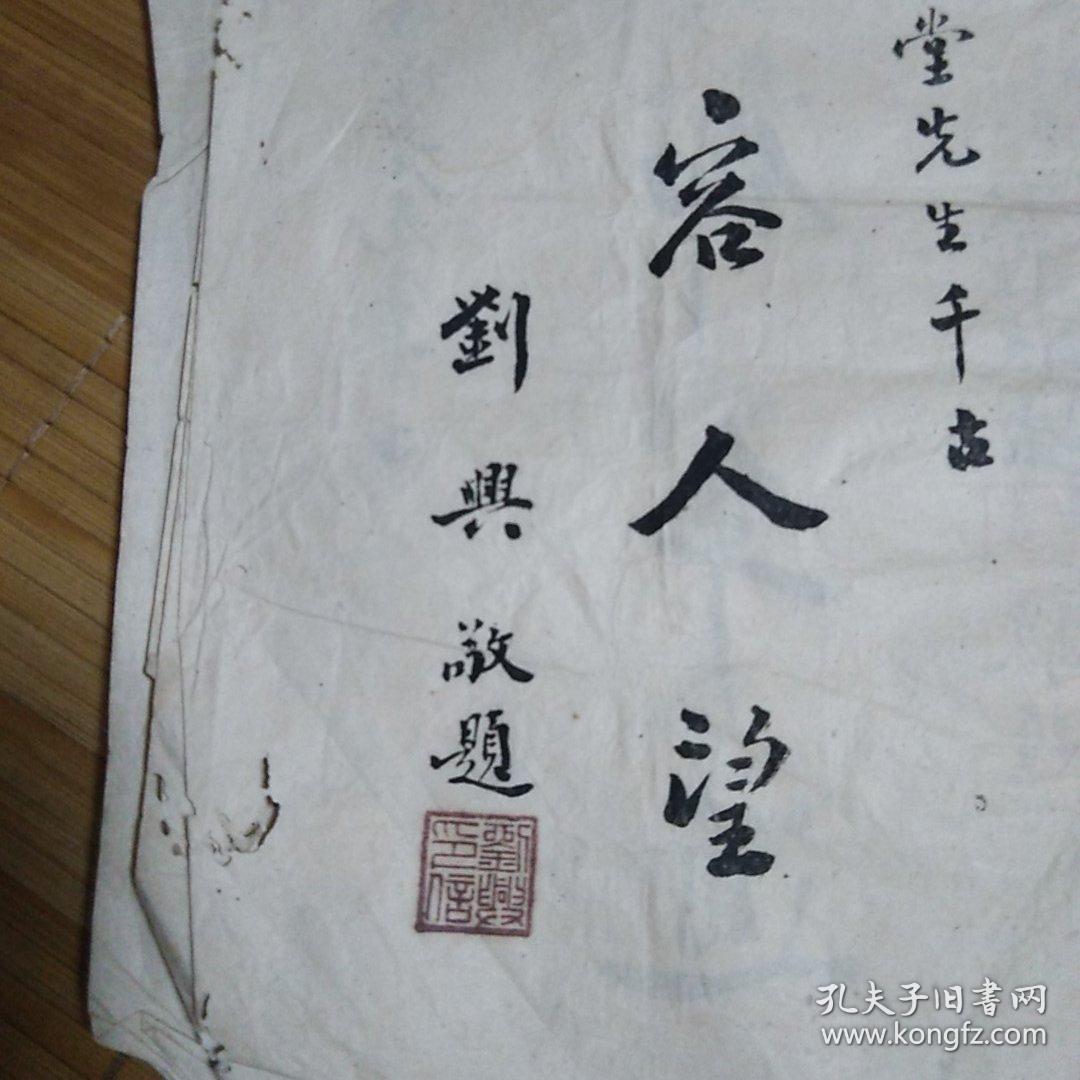 堂先生千古
容人望
劉興敬題
劉興印信
孔夫子旧书网
www.kongfz.com